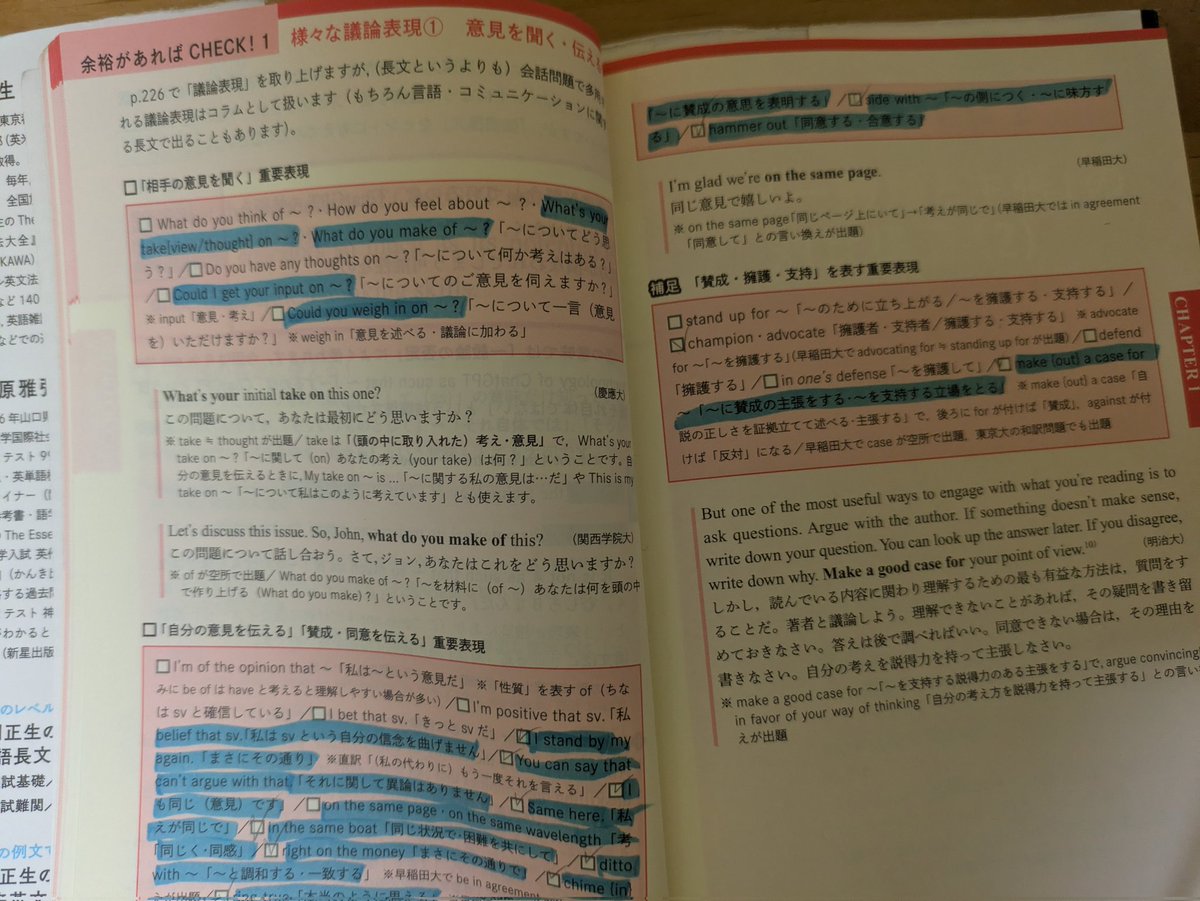 余裕があればCHECK! 1 様々な議論表現① 意見を聞く・伝える
p.226で「議論表現」を取り上げますが,(長文というよりも)会話問題で多用
れる議論表現はコラムとして扱います(もちろん言語・コミュニケーションに関す
る長文で出ることもあります)。
□「相手の意見を聞く」重要表現
□ What do you think of ~?・How do you feel about ~?・What's your
take[view/thought] on ~?・What do you make of ~?「~についてどう思
う?」/□ Do you have any thoughts on ~?「~について何か考えはある?」
/□ Could I get your input on ~?「~についてのご意見を伺えますか?」
※ input「意見・考え」/□ Could you weigh in on ~?「~について一言(意見
を)いただけますか?」 ※ weigh in「意見を述べる・議論に加わる」
What's your initial take on this one? (慶應大)
この問題について,あなたは最初にどう思いますか?
※ take ≒ thought が出題/ take は「(頭の中に取り入れた)考え・意見」で,What's your
take on ~?「~に関して(on)あなたの考え(your take)は何?」ということです。自
分の意見を伝えるときに,My take on ~ is ...「~に関する私の意見は…だ」や This is my
take on ~「~について私はこのように考えています」とも使えます。
Let's discuss this issue. So, John, what do you make of this? (関西学院大)
この問題について話し合おう。さて,ジョン,あなたはこれをどう思いますか?
※ of が空所で出題/ What do you make of ~?「~を材料に(of ~)あなたは何を頭の中
で作り上げる(What do you make)?」ということです。
□「自分の意見を伝える」「賛成・同意を伝える」重要表現
□ I'm of the opinion that ~「私は~という意見だ」 ※「性質」を表す of(ちな
みに be of は have と考えると理解しやすい場合が多い)/□ I'm positive that sv.「私
は sv と確信している」/□ I bet that sv.「きっと sv だ」/□ I stand by my
belief that sv.「私は sv という自分の信念を曲げません」/□ You can say that
again.「まさにその通り」 ※直訳「(私の代わりに)もう一度それを言える」/□ I
can't argue with that.「それに関して異論はありません」/□ Same here.「私
も同じ(意見)です」/□ on the same page・on the same wavelength「考
えが同じで」/□ in the same boat「同じ状況で・困難を共にして」/□ ditto
「同じく・同感」/□ right on the money「まさにその通りで」/□ chime (in)
with ~「~と調和する・一致する」 ※早稲田大で be in agreement
「~に賛成の意思を表明する」/□ side with ~「~の側につく・~に味方す
る」/□ hammer out「同意する・合意する」
I'm glad we're on the same page. (早稲田大)
同じ意見で嬉しいよ。
※ on the same page「同じページ上にいて」→「考えが同じで」(早稲田大では in agreement
「同意して」との言い換えが出題)
補足 「賛成・擁護・支持」を表す重要表現
□ stand up for ~「~のために立ち上がる/~を擁護する・支持する」/
□ champion・advocate「擁護者・支持者/擁護する・支持する」 ※ advocate
for ~「~を擁護する」(早稲田大で advocating for ≒ standing up for が出題)/□ defend
「擁護する」/□ in one's defense「~を擁護して」/□ make (out) a case for
~「~に賛成の主張をする・~を支持する立場をとる」 ※ make (out) a case「自
説の正しさを証拠立てて述べる・主張する」で,後ろに for が付けば「賛成」,against が付
けば「反対」になる/早稲田大で case が空所で出題,東京大の和訳問題でも出題
But one of the most useful ways to engage with what you're reading is to
ask questions. Argue with the author. If something doesn't make sense,
write down your question. You can look up the answer later. If you disagree,
write down why. Make a good case for your point of view.10) (明治大)
しかし,読んでいる内容に関わり理解するための最も有益な方法は,質問をす
ることだ。著者と議論しよう。理解できないことがあれば,その疑問を書き留
めておきなさい。答えは後で調べればいい。同意できない場合は,その理由を
書きなさい。自分の考えを説得力を持って主張しなさい。
※ make a good case for ~「~を支持する説得力のある主張をする」で,argue convincingl
in favor of your way of thinking「自分の考え方を説得力を持って主張する」との言い
えが出題
CHAPTER 1